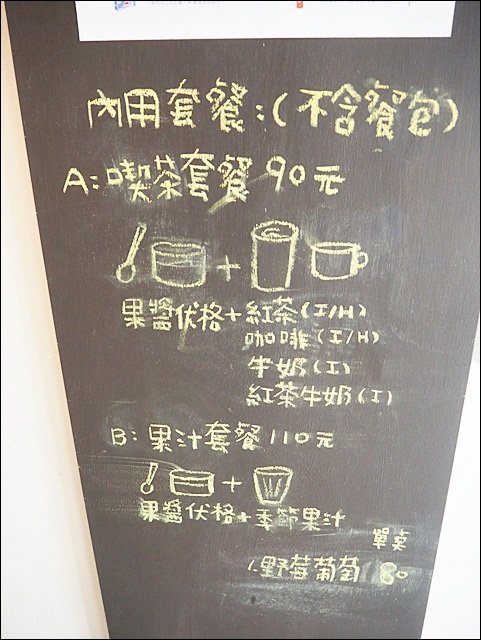 內用套餐:(不含餐包)
A:喫茶套餐 90元
果醬优格+紅茶(I/H)
咖啡(I/H)
牛奶(I)
紅茶牛奶(I)
B:果汁套餐 110元
果醬优格+季節果汁
單卖
1.野莓葡萄 80